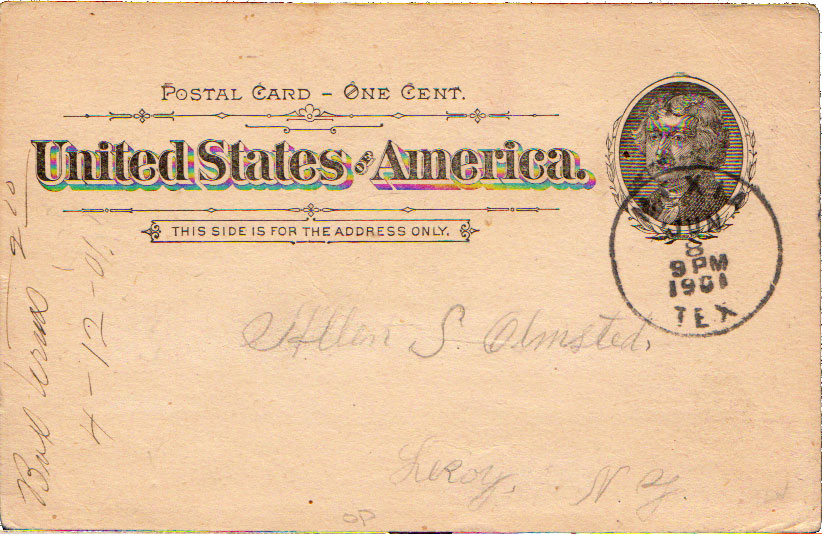 POSTAL CARD – ONE CENT.
United States OF America.
THIS SIDE IS FOR THE ADDRESS ONLY.
JUN
8
9 PM
1901
TEX
Allen S Olmsted.
Leroy, N Y.
4-12-01.
OP